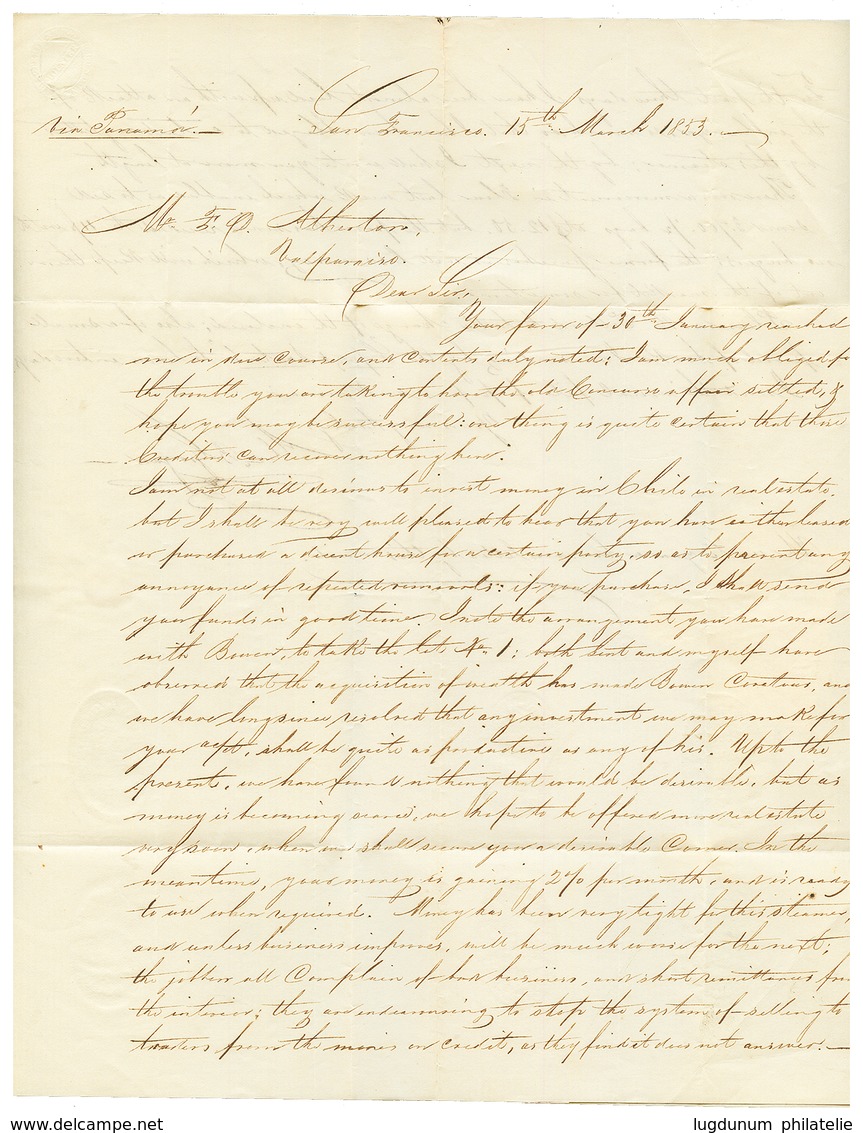 via Panamá. San Francisco. 15th March 1853.
Mr. F. D. Atherton,
Valparaiso.
Dear Sir,
Your favor of 30th January reached
me in due course, and contents duly noted: I am much obliged for
the trouble you are taking to have the old Concurso affair settled, &
hope you may be successful: one thing is quite certain that those
Creditors can recover nothing here.
I am not at all desirous to invest money in Chile in real estate,
but I shall be very well pleased to hear that you have either leased
or purchased a decent house for a certain party, so as to prevent any
annoyance of repeated removals: if you purchase, I shall send
you funds in good time. I note the arrangement you have made
with Bowen, to take the lot No. 1; both and myself have
observed that the acquisition of wealth has made Bowen Covetous, and
we have long since resolved that any investment we may make for
your acct, shall be quite as productive as any of his. Up to the
present, we have found nothing that would be desirable, but as
money is becoming scarce, we hope to be offered more real estate
very soon, when we shall secure you a desirable Corner. In the
meantime, your money is gaining 2% per month, and is ready
to use when required. Money has been very tight for this steamer,
and unless business improves, will be much worse for the next;
the jobbers all Complain of bad business, and short remittances from
the interior; they are endeavouring to stop the system of selling to
traders from the mines on credit, as they find it does not answer.
delcampe.net lugdunum philatelie